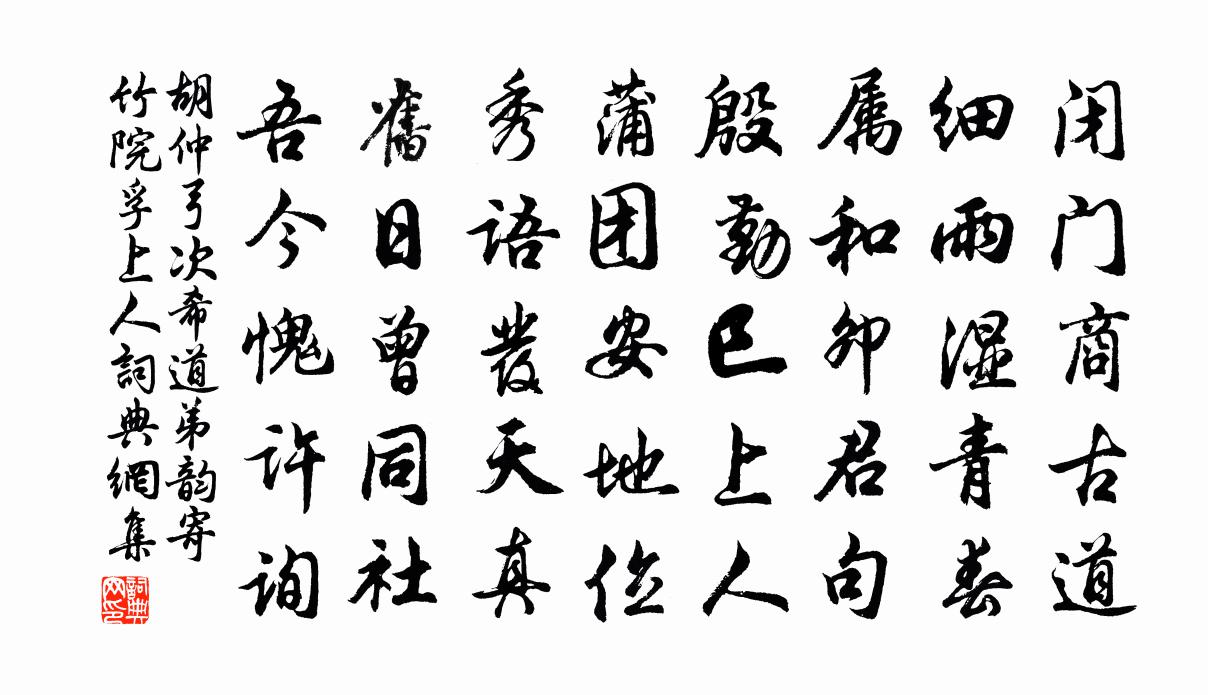 闭门商古道
细雨湿青春
属和卯君句
殷勤巳上人
蒲团安地位
秀语發天真
舊日曾同社
吾今愧许询
胡仲弓次希道弟韵寄
竹院孚上人詞典網集
詞典
网印